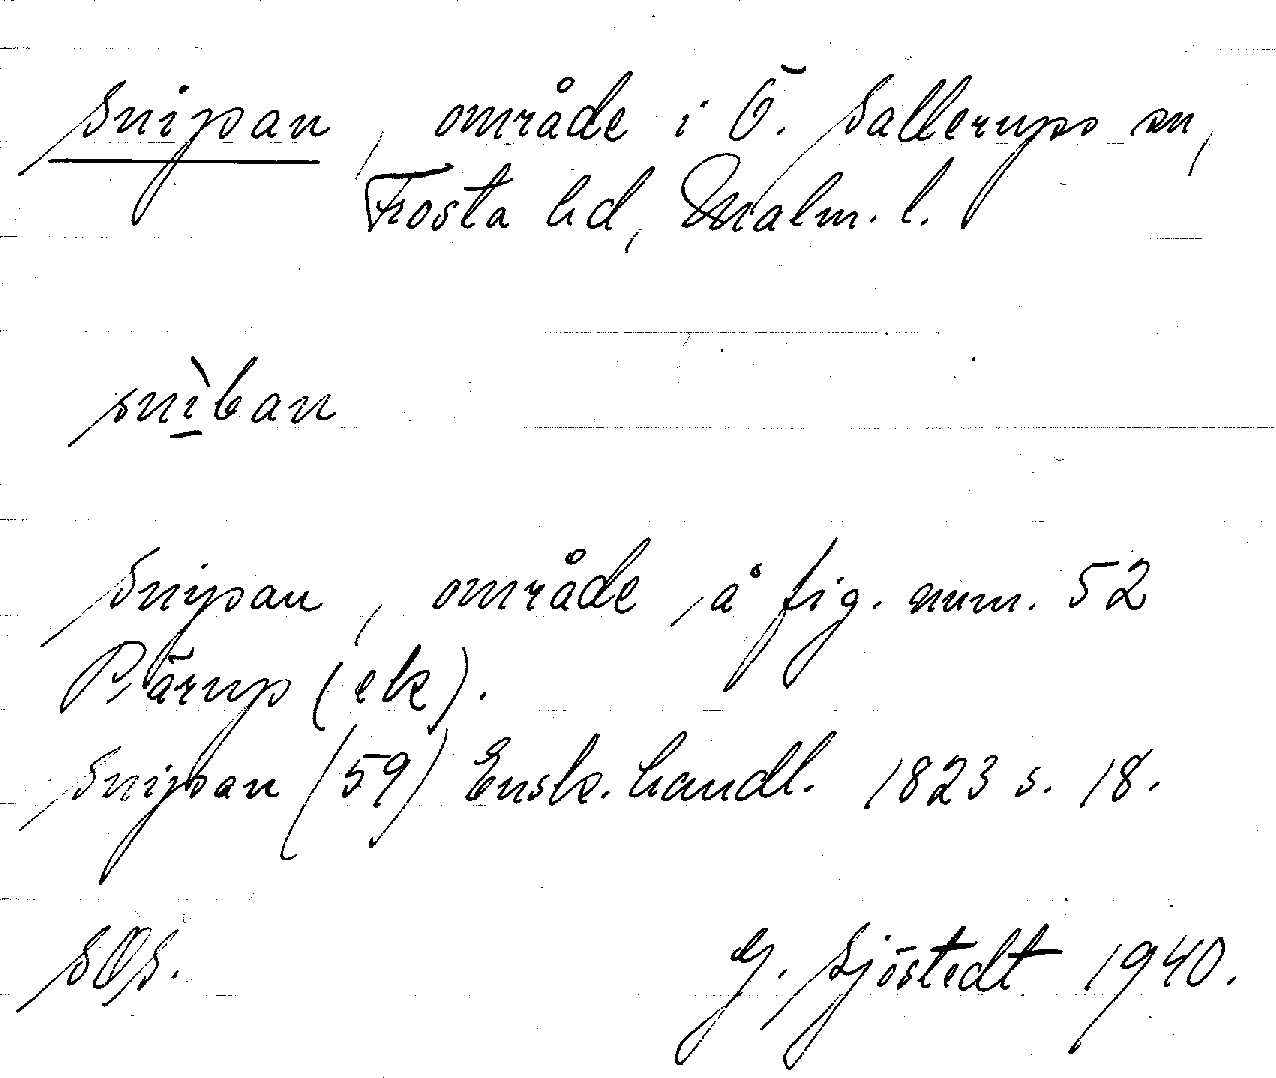 Snipan, område i Ö. Sallerups sn,
Frosta hd, Malm. l.
snìban
Snipan, område å fig. num. 52
Pärup (ek).
Snipan (59) Ensk. handl. 1823 s. 18.
SOS.
G. Sjöstedt 1940.